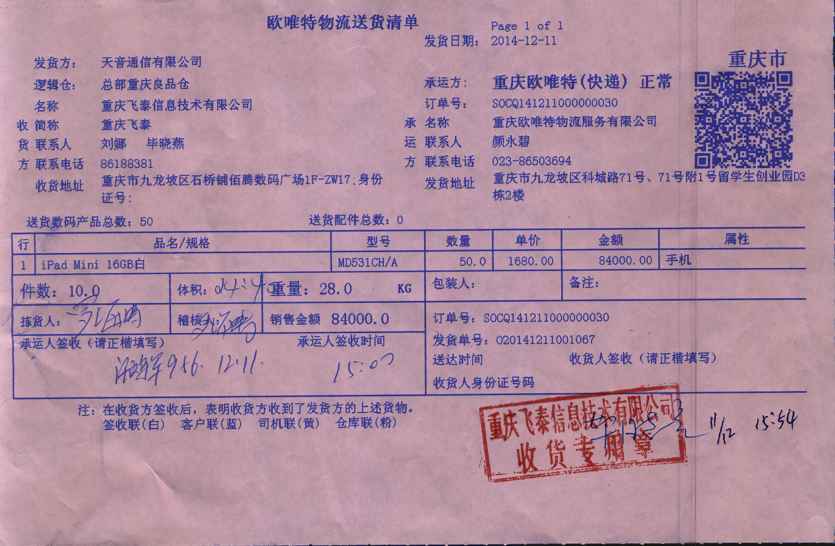 欧唯特物流送货清单
Page 1 of 1
发货日期: 2014-12-11
重庆市
发货方: 天音通信有限公司
逻辑仓: 总部重庆良品仓
承运方: 重庆欧唯特(快递) 正常
名称 重庆飞泰信息技术有限公司
订单号: SOCQ141211000000030
收 简称 重庆飞泰
承 名称 重庆欧唯特物流服务有限公司
货 联系人 刘娜 毕晓燕
运 联系人 颜永碧
方 联系电话 86188381
方 联系电话 023-86503694
收货地址 重庆市九龙坡区石桥铺佰腾数码广场1F-ZW17.身份证号:
发货地址 重庆市九龙坡区科城路71号、71号附1号留学生创业园D3栋2楼
送货数码产品总数: 50
送货配件总数: 0
行 品名/规格 型号 数量 单价 金额 属性
1 iPad Mini 16GB白 MD531CH/A 50.0 1680.00 84000.00 手机
件数: 10.0 体积: 重量: 28.0 KG 包装人: 备注:
拣货人: 稽核 销售金额 84000.0
订单号: SOCQ141211000000030
发货单号: 020141211001067
承运人签收(请正楷填写) 承运人签收时间
送达时间 收货人签收(请正楷填写)
956. 12.11. 15:00
收货人身份证号码
注: 在收货方签收后, 表明收货方收到了发货方的上述货物。
签收联(白) 客户联(蓝) 司机联(黄) 仓库联(粉)
重庆飞泰信息技术有限公司
收货专用章
11/12 15:54